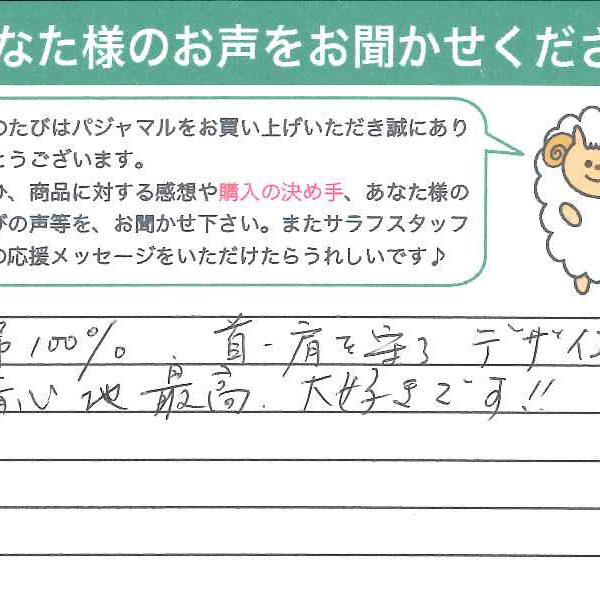 なた様のお声をお聞かせくださ
のたびはパジャマルをお買い上げいただき誠にあり
とうございます。
ひ、商品に対する感想や購入の決め手、あなた様の
びの声等を、お聞かせ下さい。またサラフスタッフ
の応援メッセージをいただけたらうれしいです♪
綿100%、首・肩を守るデザイン
着心地最高、大好きです!!